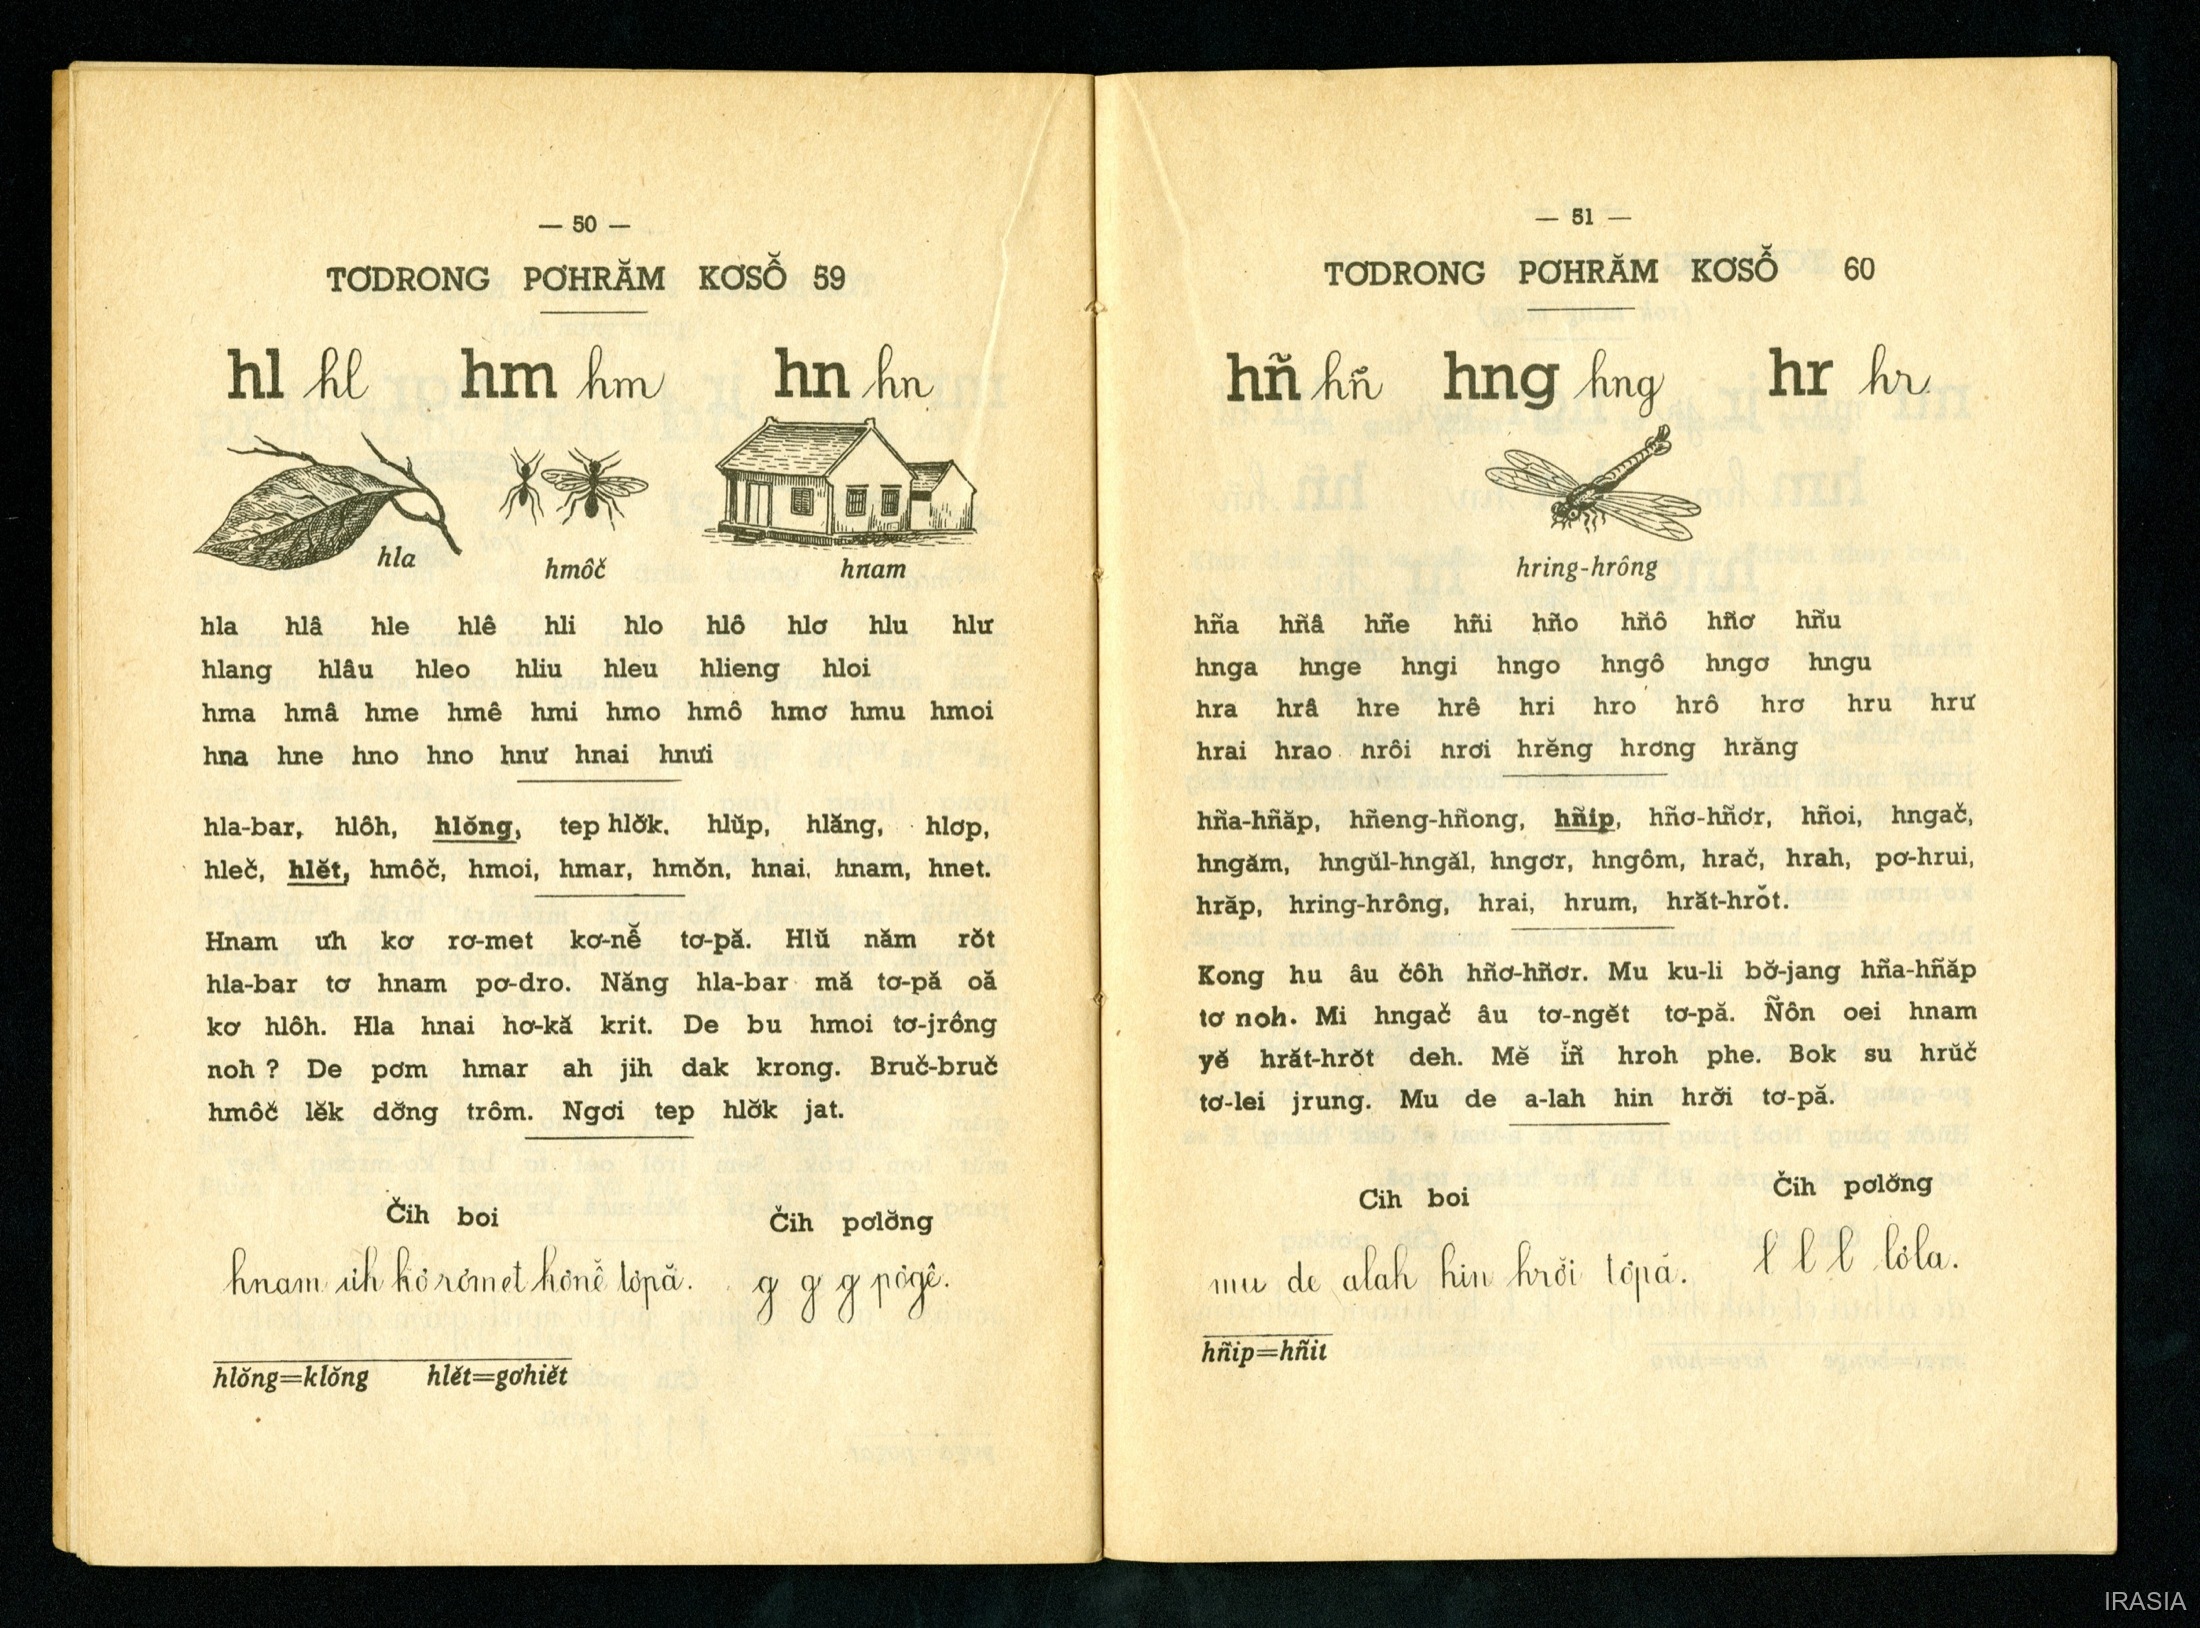 — 50 —
TƠDRONG PƠHRĂM KƠSÔ̆ 59
hl hl hm hm hn hn
hla hmôč hnam
hla hlâ hle hlê hli hlo hlô hlơ hlu hlư
hlang hlâu hleo hliu hleu hlieng hloi
hma hmâ hme hmê hmi hmo hmô hmơ hmu hmoi
hna hne hno hno hnư hnai hnưi
hla-bar, hlôh, hlŏng, tep hlơ̆k, hlŭp, hlăng, hlơp,
hleč, hlĕt, hmôč, hmoi, hmar, hmŏn, hnai, hnam, hnet.
Hnam ưh kơ rơ-met kơ-nê̆ tơ-pă. Hlŭ năm rŏt
hla-bar tơ hnam pơ-dro. Năng hla-bar mă tơ-pă oă
kơ hlôh. Hla hnai hơ-kă krit. De bu hmoi tơ-jrô̆ng
noh ? De pơm hmar ah jih dak krong. Bruč-bruč
hmôč lĕk dơ̆ng trôm. Ngơi tep hlơ̆k jat.
Čih boi Čih pơlơ̆ng
hnam ưh kơ rơmet kơnê̆ tơpă. g g g pơgê.
hlŏng=klŏng hlĕt=gơhiĕt
— 51 —
TƠDRONG PƠHRĂM KƠSÔ̆ 60
hñ hñ hng hng hr hr
hring-hrông
hña hñâ hñe hñi hño hñô hñơ hñu
hnga hnge hngi hngo hngô hngơ hngu
hra hrâ hre hrê hri hro hrô hrơ hru hrư
hrai hrao hrôi hrơi hrĕng hrơng hrăng
hña-hñăp, hñeng-hñong, hñip, hñơ-hñơr, hñoi, hngač,
hngăm, hngŭl-hngăl, hngơr, hngôm, hrač, hrah, pơ-hrui,
hrăp, hring-hrông, hrai, hrum, hrăt-hrŏt.
Kong hu âu čôh hñơ-hñơr. Mu ku-li bơ̆-jang hña-hñăp
tơ noh. Mi hngač âu tơ-ngĕt tơ-pă. Ñôn oei hnam
yĕ hrăt-hrŏt deh. Mĕ ĭñ hroh phe. Bok su hrŭč
tơ-lei jrung. Mu de a-lah hin hrơ̆i tơ-pă.
Čih boi Čih pơlơ̆ng
mu de alah hin hrơ̆i tơpă. l l l lơla.
hñip=hñit
IRASIA